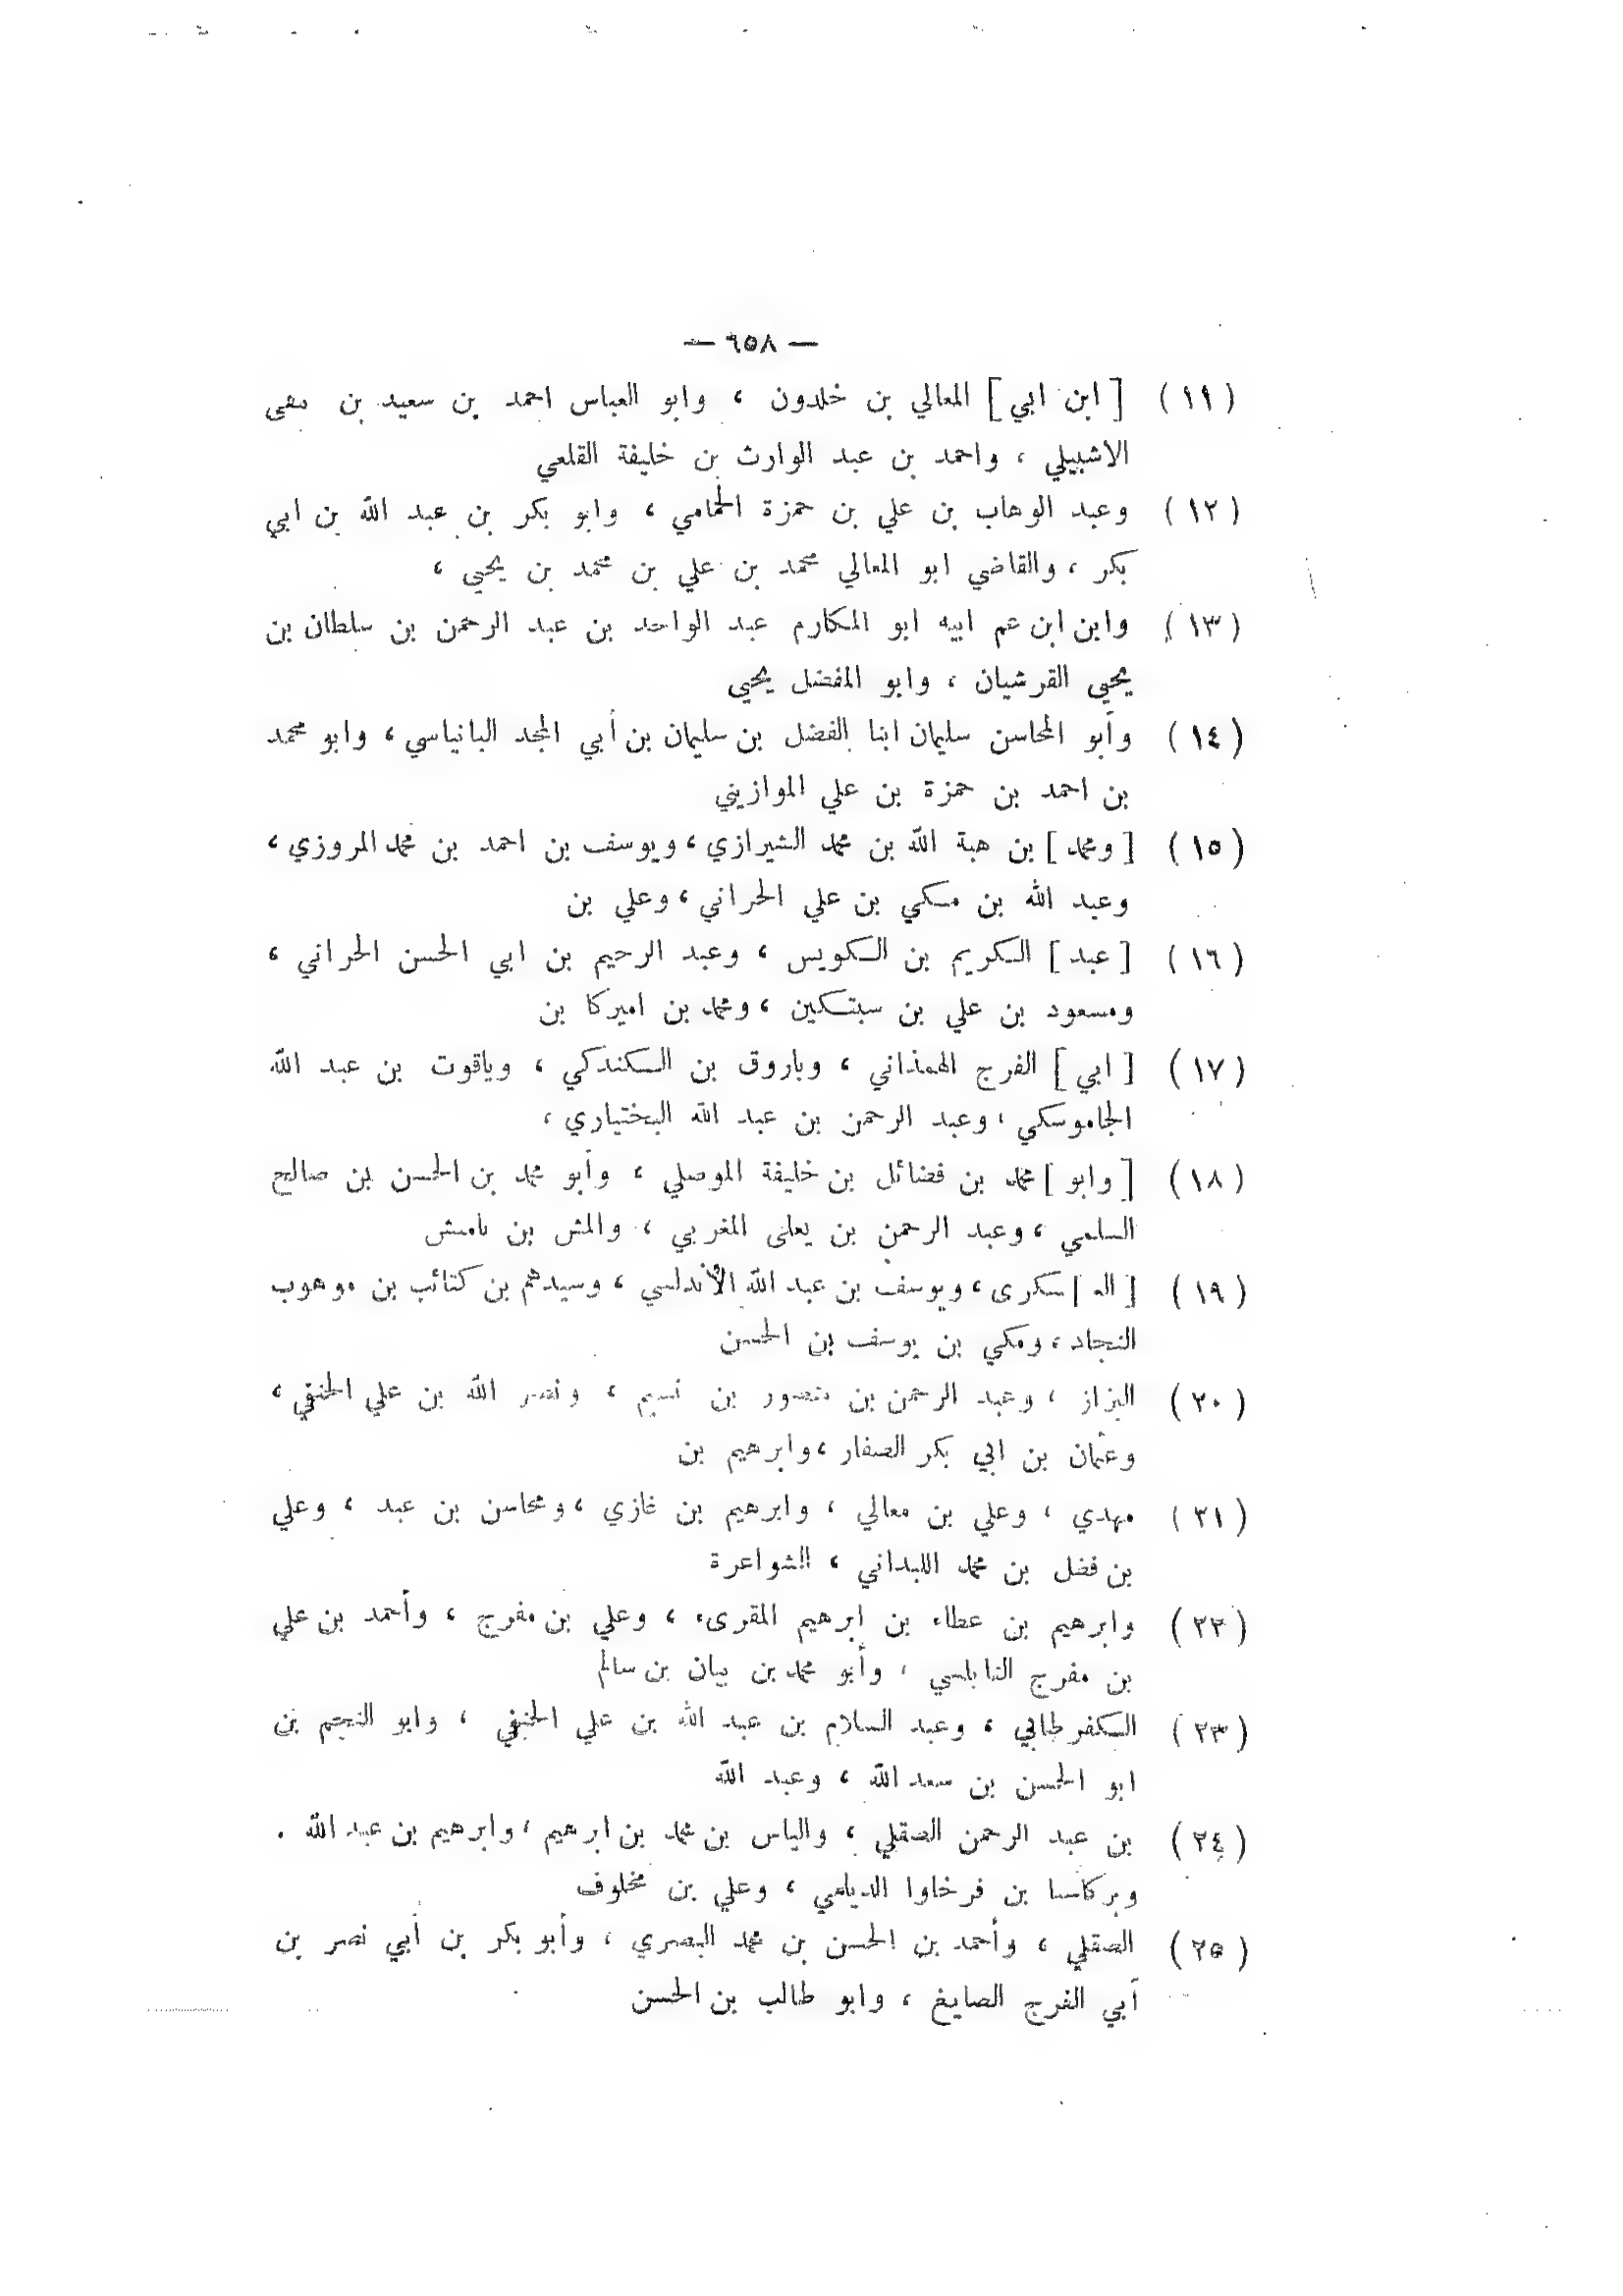 — ٦٥٨ —
(١١) [ ابن ابي ] المعالي بن خلدون ، وابو العباس احمد بن سعيد بن
الاشبيلي ، واحمد بن عبد الوارث بن خليفة القلعي
(١٢) وعبد الوهاب بن علي بن حمزة الحمامي ، وابو بكر بن عبد الله بن ابي
بكر ، والقاضي ابو المعالي محمد بن علي بن محمد بن يحيى ،
(١٣) وابن ابن عم ابيه ابو المكارم عبد الواحد بن عبد الرحمن بن سلطان بن
يحيي القرشيان ، وابو المفضل يحيي
(١٤) وأبو المحاسن سليمان ابنا الفضل بن سليمان بن أبي المجد البانياسي ، وابو محمد
بن احمد بن حمزة بن علي الموازيني
(١٥) [ ومحمد ] بن هبة الله بن محمد الشيرازي ، ويوسف بن احمد بن محمد المروزي ،
وعبد الله بن مكي بن علي الحراني ، وعلي بن
(١٦) [ عبد ] الكريم بن الكويس ، وعبد الرحيم بن ابي الحسن الحراني ،
ومسعود بن علي بن سبتكين ، ومحمد بن اميركا بن
(١٧) [ ابي ] الفرج الهمذاني ، وباروق بن السكندكي ، وياقوت بن عبد الله
الجاموسكي ، وعبد الرحمن بن عبد الله البختياري ،
(١٨) [ وابو ] محمد بن فضائل بن خليفة الموصلي ، وأبو محمد بن الحسن بن صالح
السلمي ، وعبد الرحمن بن يعلى المغربي ، والمش بن
(١٩) [ الـ ] سكرى ، ويوسف بن عبد الله الأندلسي ، وسيدهم بن كتائب بن موهوب
النجاد ، ومكي بن يوسف بن الحسن
(٢٠) البزاز ، وعبد الرحمن بن منصور بن نسيم ، ونصر الله بن علي الحنفي ،
وعثمان بن ابي بكر الصفار ، وابرهيم بن
(٢١) مهدي ، وعلي بن معالي ، وابرهيم بن غازي ، ومحاسن بن عبد ، وعلي
بن فضل بن محمد اللبداني ، الشواعرة
(٢٢) وابرهيم بن عطاء بن ابرهيم المقرىء ، وعلي بن مفرج ، وأحمد بن علي
بن مفرج النابلسي ، وأبو محمد بن بيان بن سالم
(٢٣) الكفرطابي ، وعبد السلام بن عبد الله بن علي الحنفي ، وابو النجم بن
ابو الحسن بن سعد الله ، وعبد الله
(٢٤) بن عبد الرحمن الصقلي ، والياس بن محمد بن ابرهيم ، وابرهيم بن عبد الله .
بن فرخاوا الديلمي ، وعلي بن مخلوف
(٢٥) الصقلي ، وأحمد بن الحسن بن محمد البصري ، وأبو بكر بن أبي نصر بن
أبي الفرج الصايغ ، وابو طالب بن الحسن